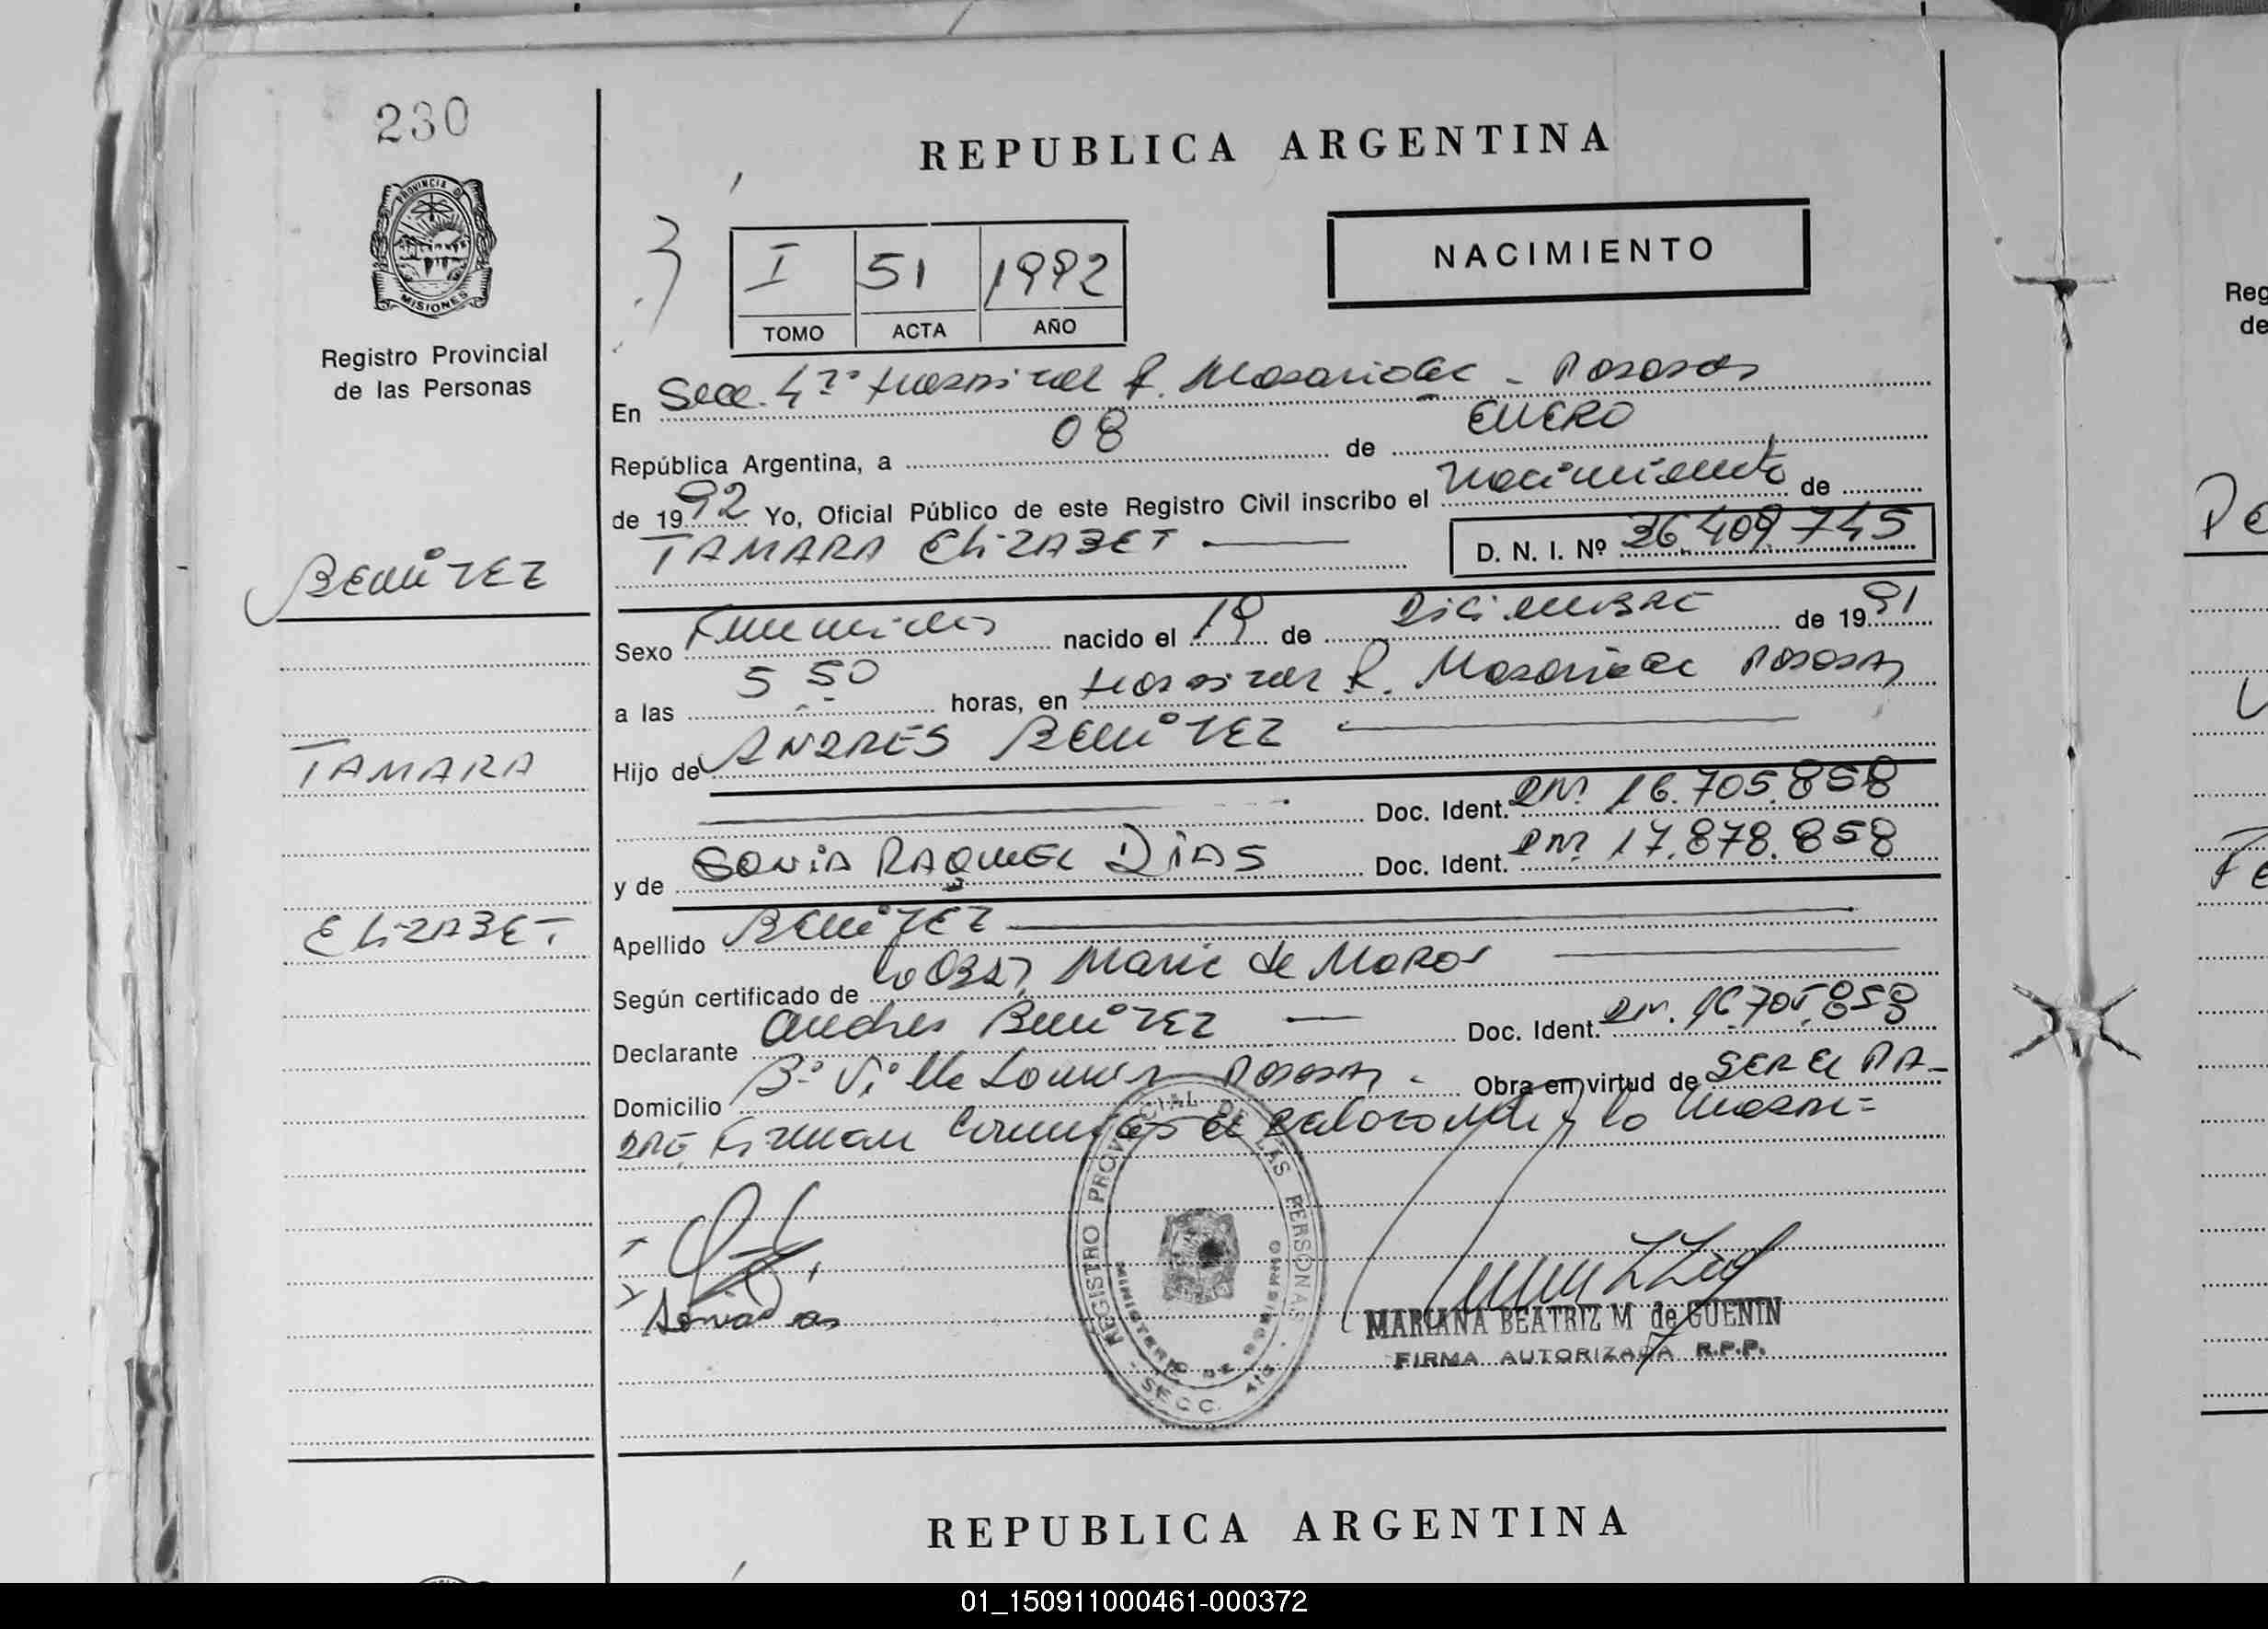 230
PROVINCIA DE
MISIONES
Registro Provincial
de las Personas
BENITEZ
TAMARA
ELIZABET
REPUBLICA ARGENTINA
I 51 1992
TOMO ACTA AÑO
NACIMIENTO
En Secc. 4ta Hospital R. Madariaga - Posadas
República Argentina, a 08 de ENERO
de 1992 Yo, Oficial Público de este Registro Civil inscribo el Nacimiento de
TAMARA ELIZABET D. N. I. Nº 36.409.745
Sexo Femenino nacido el 19 de DICIEMBRE de 1991
a las 5 50 horas, en Hospital R. Madariaga Posadas
Hijo de ANDRES BENITEZ
Doc. Ident. DNI. 16.705.858
y de SONIA RAQUEL DIAS Doc. Ident. DNI. 17.878.858
Apellido BENITEZ
Según certificado de Marie de
Declarante Andres Benitez Doc. Ident. DNI. 16.705.858
Domicilio Bº Villa Posadas - Obra en virtud de SER EL PA-
DRE Firman
REGISTRO PROVINCIAL DE LAS PERSONAS
MINISTERIO DE GOBIERNO
SECC. 4ta
MARIANA BEATRIZ M de GUENIN
FIRMA AUTORIZADA R.P.P.
REPUBLICA ARGENTINA
Reg
de
01_150911000461-000372